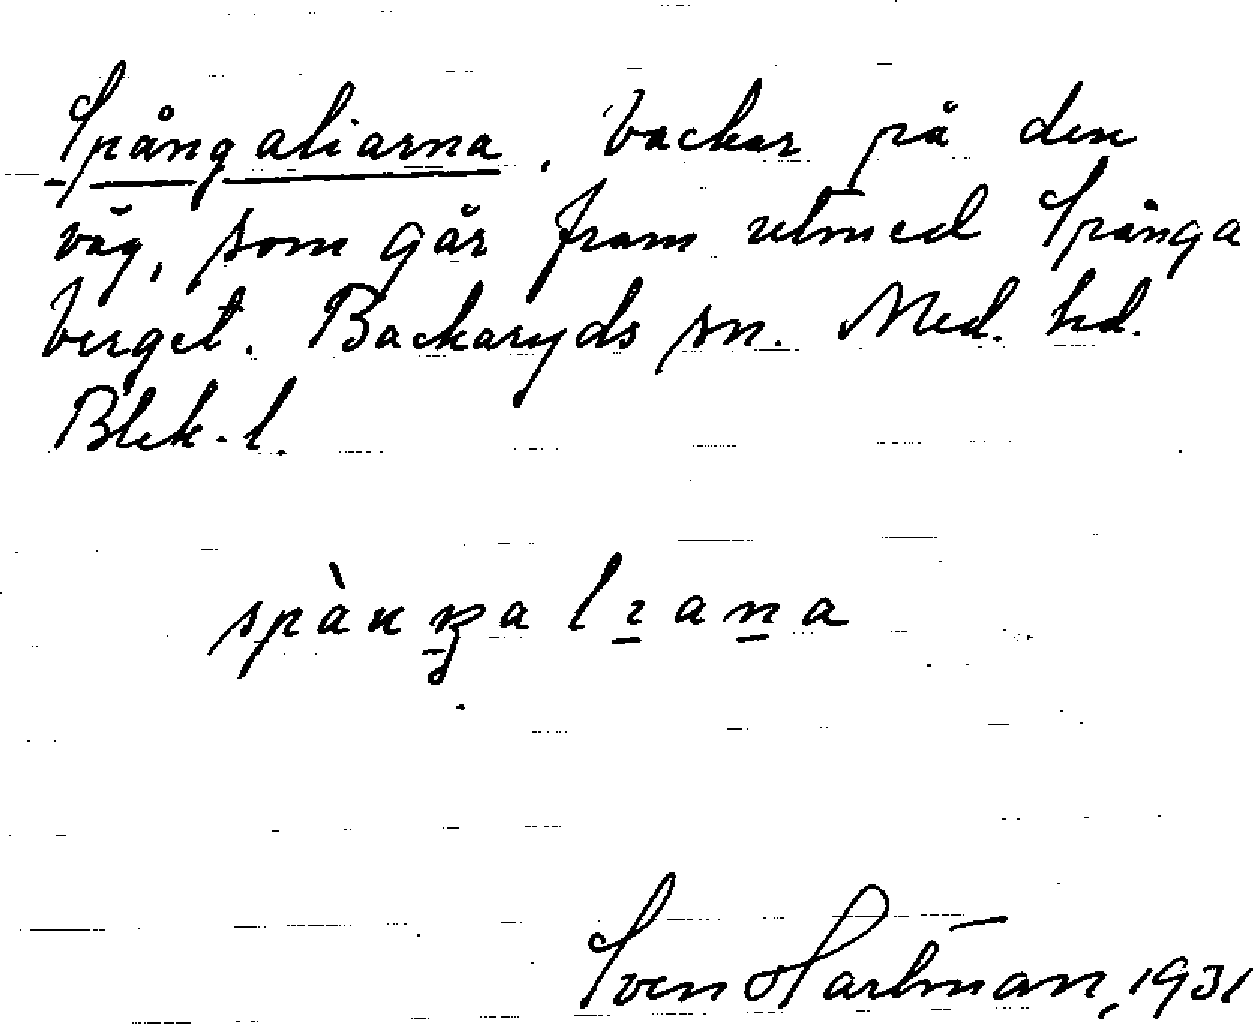 Spångaliarna, backar på den
väg, som går fram utmed Spånga
berget. Backaryds sn. Med. hd.
Blek. l.
Sven Hartman, 1931